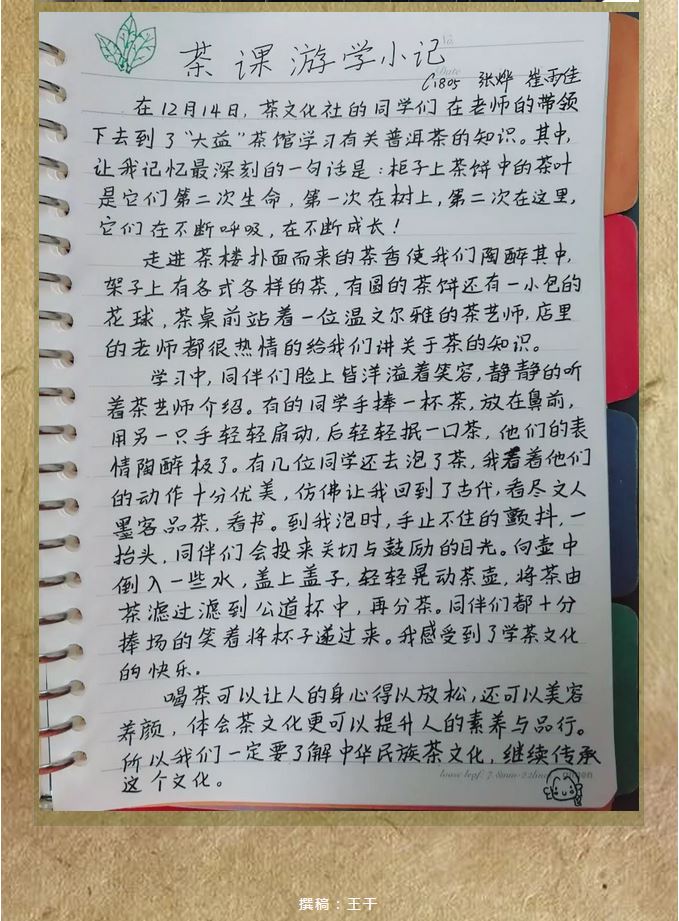 茶课游学小记
C1805 张烨 崔雨佳
在12月14日，茶文化社的同学们在老师的带领
下去到了“大益”茶馆学习有关普洱茶的知识。其中，
让我记忆最深刻的一句话是：柜子上茶饼中的茶叶
是它们第二次生命，第一次在树上，第二次在这里，
它们在不断呼吸，在不断成长！
走进茶楼扑面而来的茶香使我们陶醉其中，
架子上有各式各样的茶，有圆的茶饼还有一小包的
花球，茶桌前站着一位温文尔雅的茶艺师，店里
的老师都很热情的给我们讲关于茶的知识。
学习中，同伴们脸上皆洋溢着笑容，静静的听
着茶艺师介绍。有的同学手捧一杯茶，放在鼻前，
用另一只手轻轻扇动，后轻轻抿一口茶，他们的表
情陶醉极了。有几位同学还去泡了茶，我看着他们
的动作十分优美，仿佛让我回到了古代，看尽文人
墨客品茶，看书。到我泡时，手止不住的颤抖，一
抬头，同伴们会投来关切与鼓励的目光。向壶中
倒入一些水，盖上盖子，轻轻晃动茶壶，将茶由
茶滤过滤到公道杯中，再分茶。同伴们都十分
捧场的笑着将杯子递过来。我感受到了学茶文化
的快乐。
喝茶可以让人的身心得以放松，还可以美容
养颜，体会茶文化更可以提升人的素养与品行。
所以我们一定要了解中华民族茶文化，继续传承
这个文化。
撰稿：王干